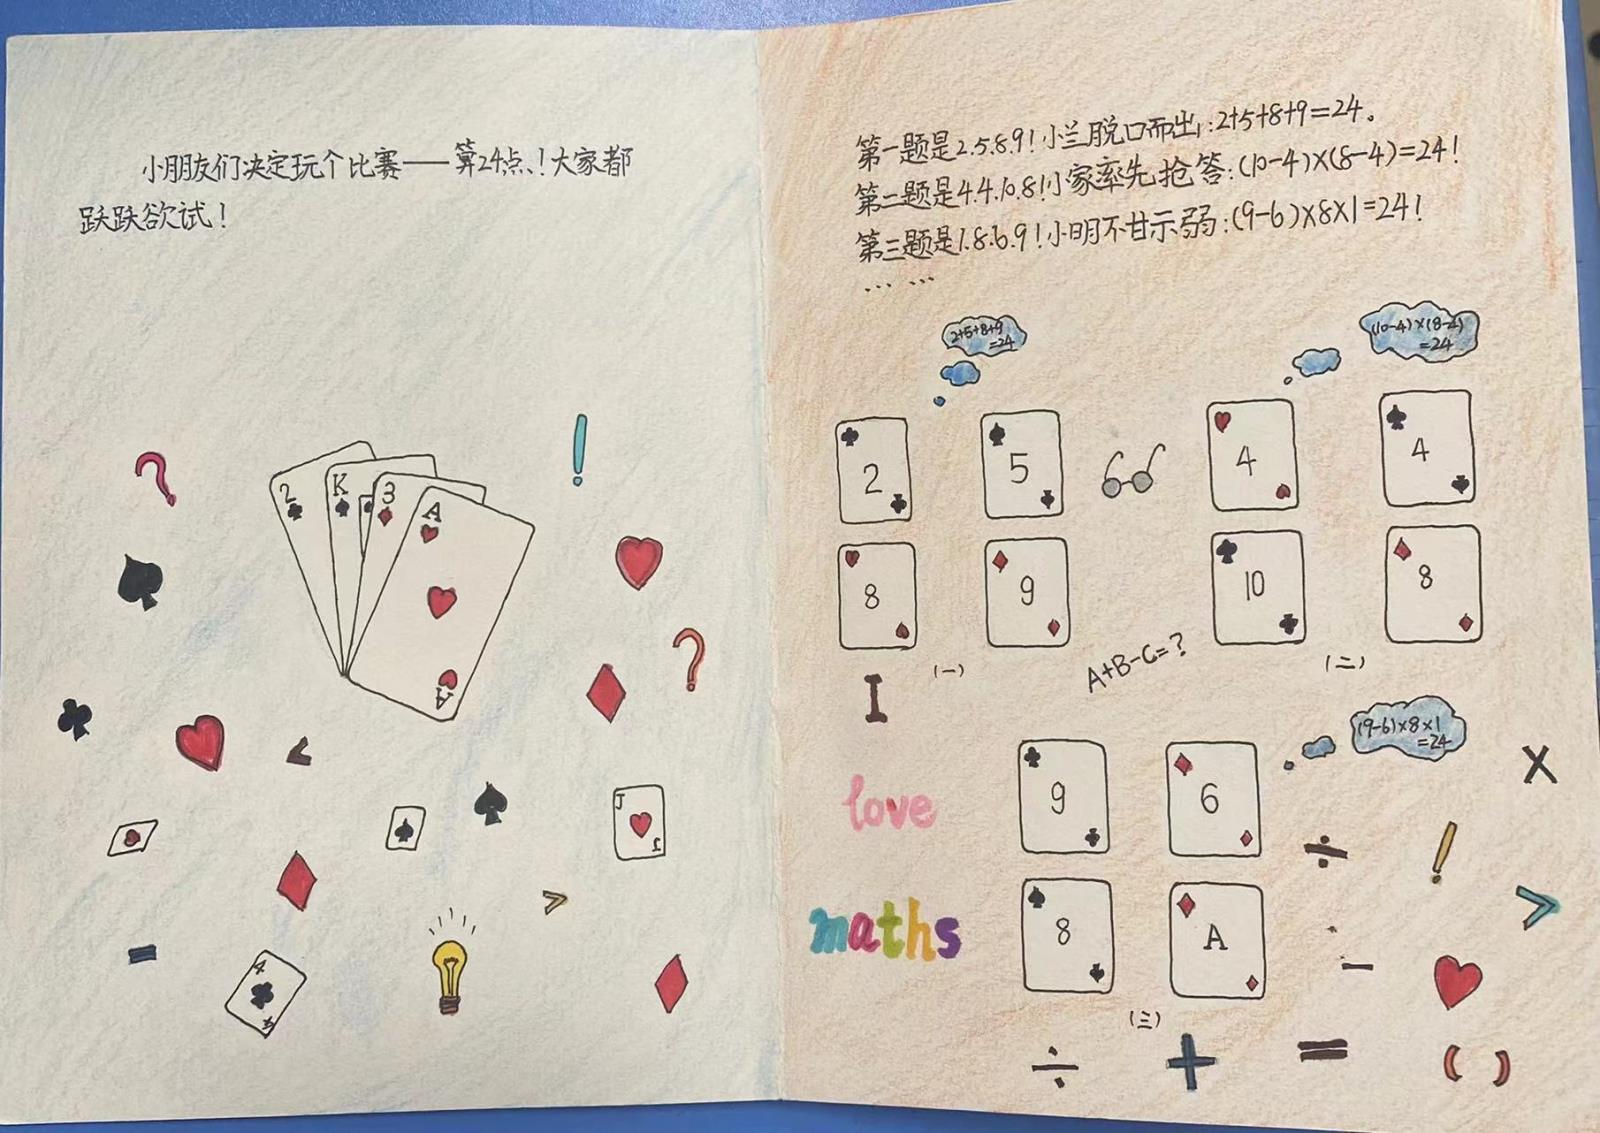 小朋友们决定玩个比赛——算24点！大家都
跃跃欲试！
2
K
3
A
A
J
J
4
4
第一题是2.5.8.9！小兰脱口而出：2+5+8+9=24。
第二题是4.4.10.8！小家率先抢答：(10-4)×(8-4)=24！
第三题是1.8.6.9！小明不甘示弱：(9-6)×8×1=24！
… …
2+5+8+9
=24
(10-4)×(8-4)
=24
2
5
4
4
8
9
10
8
(一)
A+B-C=?
(二)
I
love
maths
(9-6)×8×1
=24
9
6
8
A
(三)